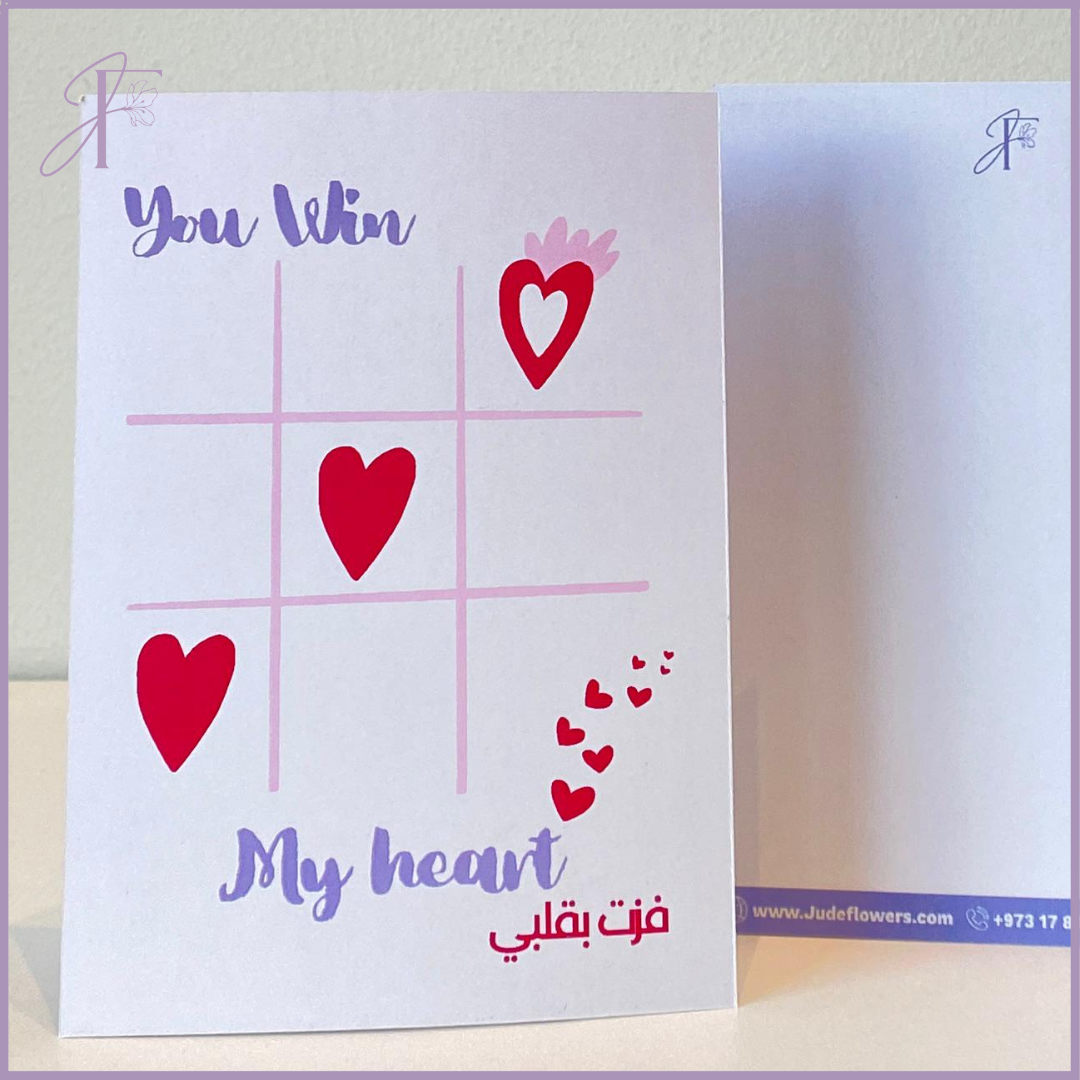 JF
You Win
My heart
فزت بقلبي
JF
www.Judeflowers.com +973 17 8